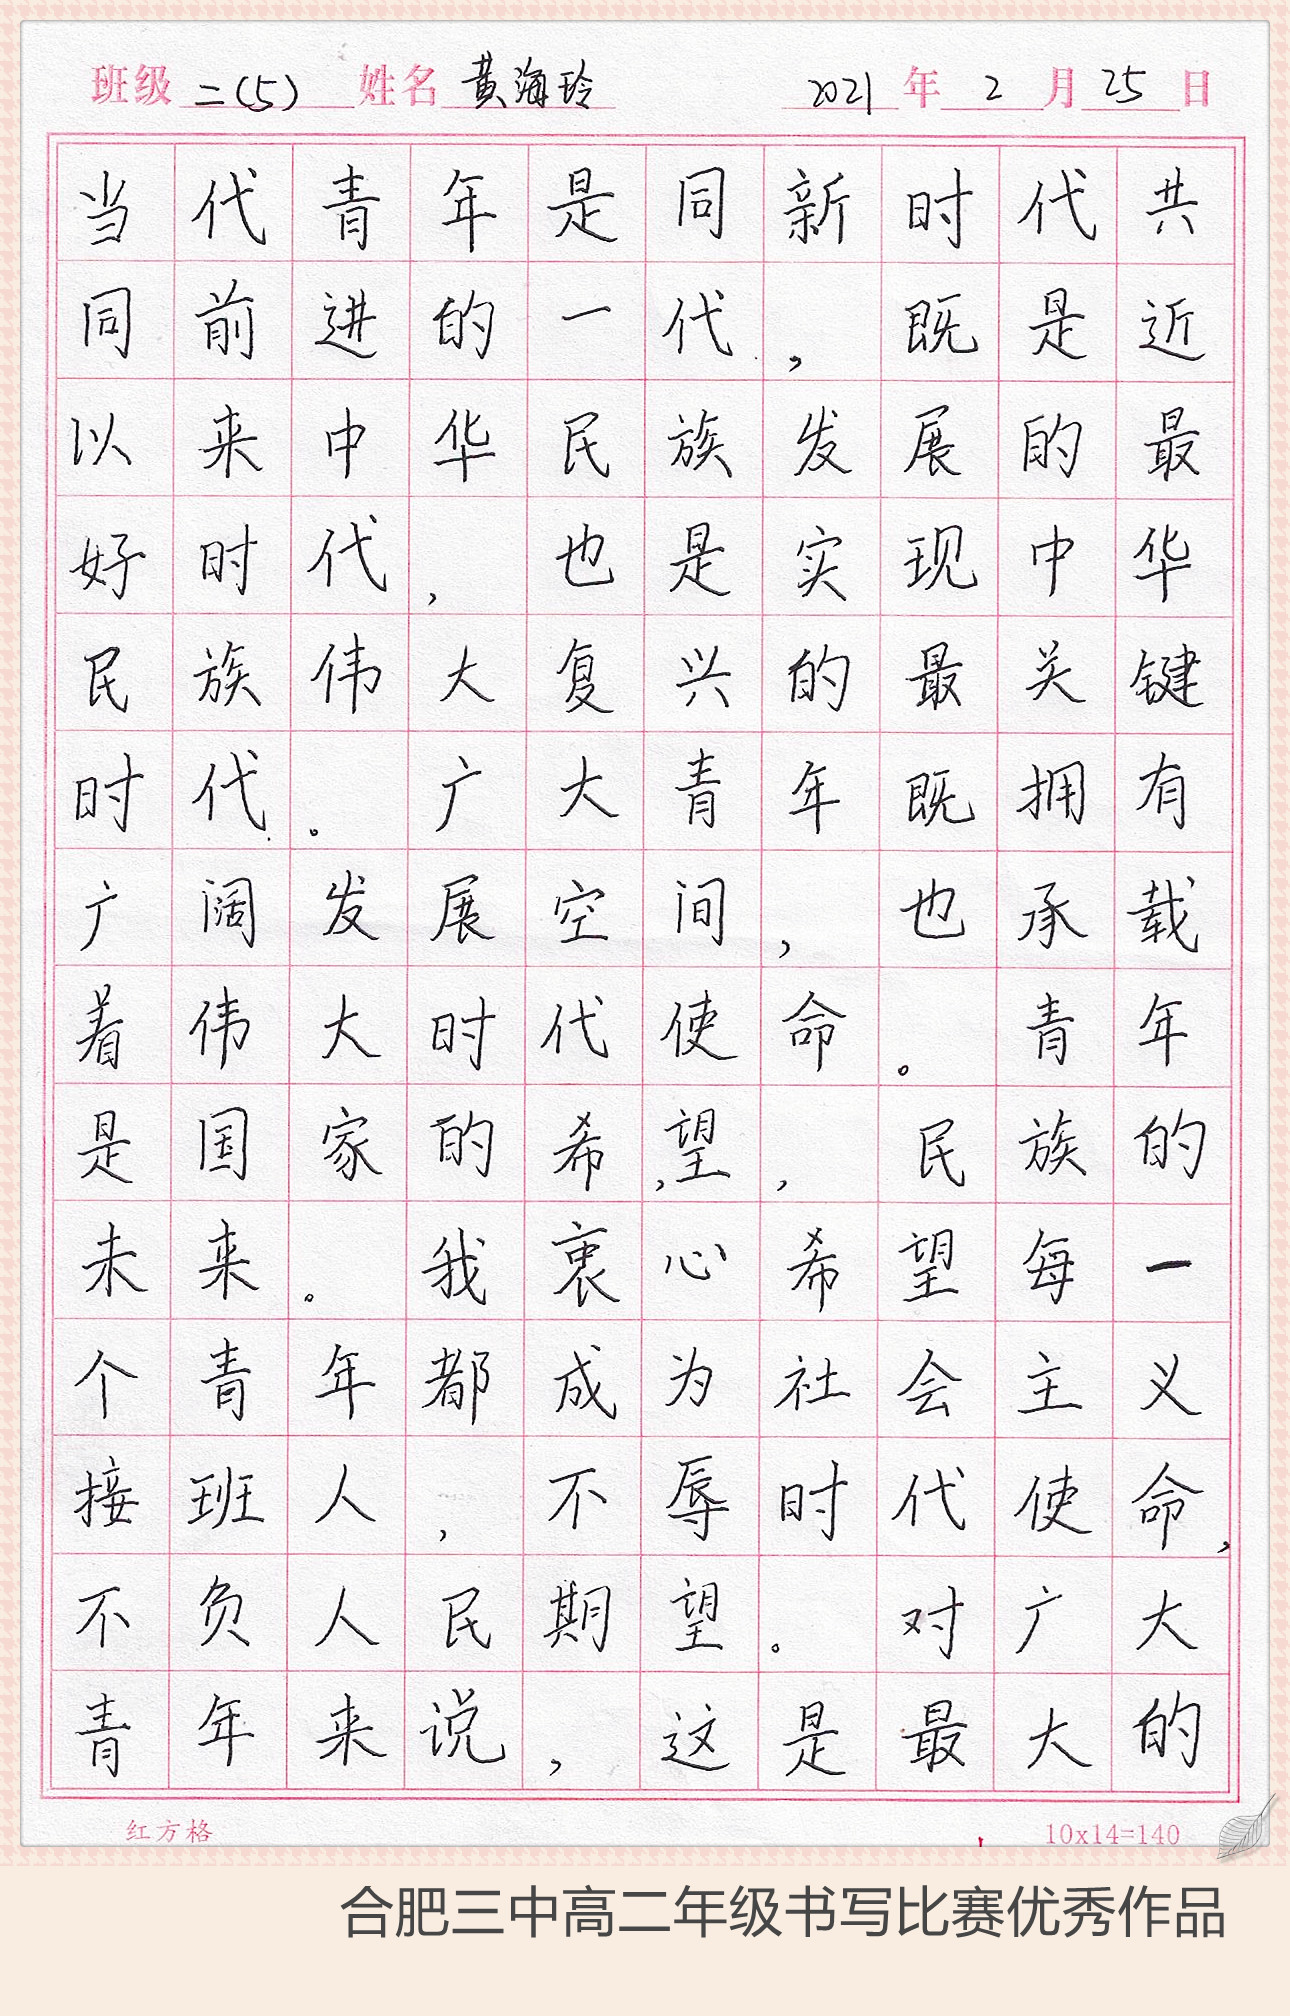 班级 二(5) 姓名 黄海玲 2021 年 2 月 25 日
当代青年是同新时代共
同前进的一代，既是近
以来中华民族发展的最
好时代，也是实现中华
民族伟大复兴的最关键
时代。广大青年既拥有
广阔发展空间，也承载
着伟大时代使命。青年
是国家的希,望，民族的
未来。我衷心希望每一
个青年都成为社会主义
接班人，不辱时代使命，
不负人民期望。对广大
青年来说，这是最大的
红方格 10x14=140
合肥三中高二年级书写比赛优秀作品